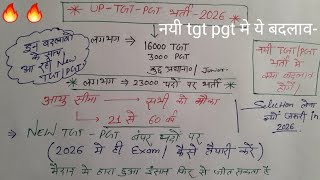 UP-TGT-PGT भर्ती-2026
नयी tgt pgt मे ये बदलाव-
इन बदलावों
के साथ
आ रही New
TGT/PGT
लगभग
16000 TGT
3000 PGT
कुछ प्रधाना
नयी TGT/PGT
भर्ती में
क्या बदलाव
लगभग 23000 पदों पर भर्ती
आयु सीमा
सभी को मौका
21 से 60 वर्ष
Selection लेना
2026
NEW TGT - PGT बंपर पदों पर
(2026 में ही Exam/ कैसे तैयारी करें)
मैदान में हारा हुआ इंसान फिर से जीत सकता है